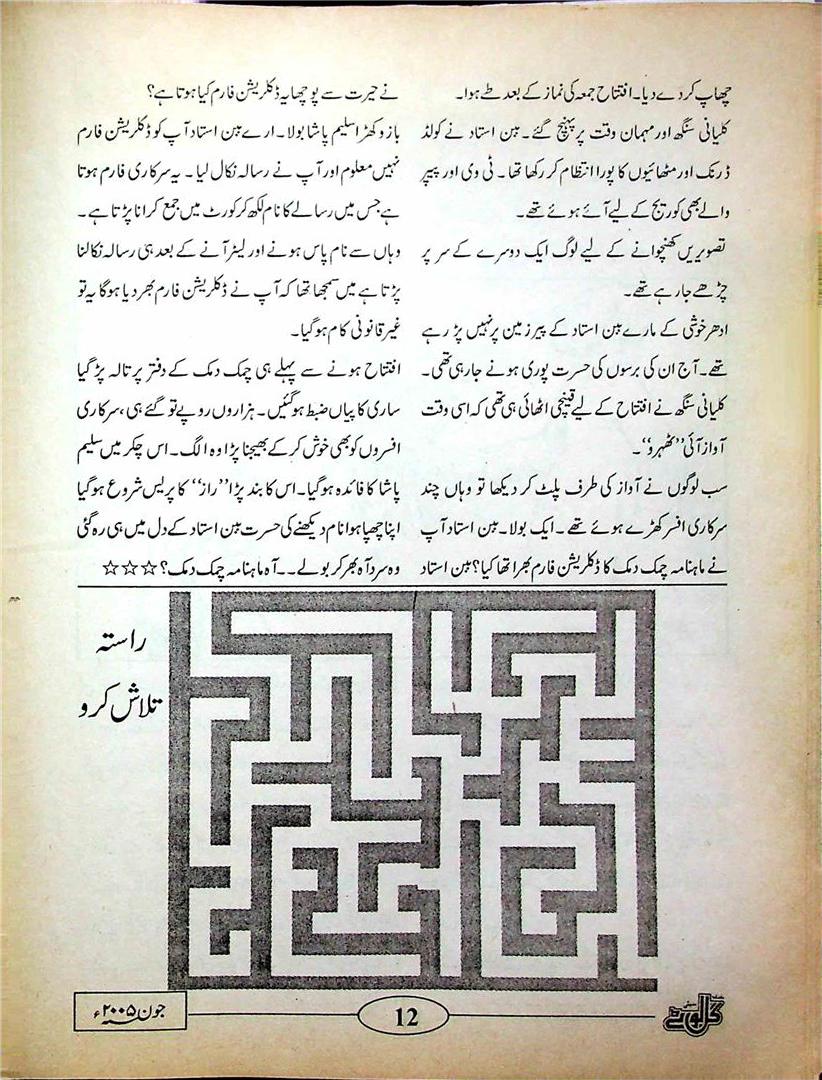 چھاپ کر دے دیا۔ افتتاح جمعہ کی نماز کے بعد طے ہوا۔
کلیانی سنگھ اور مہمان وقت پر پہنچ گئے۔ ببن استاد نے کولڈ
ڈرنک اور مٹھائیوں کا پورا انتظام کر رکھا تھا۔ ٹی وی اور پیپر
والے بھی کوریج کے لیے آئے ہوئے تھے۔
تصویریں کھنچوانے کے لیے لوگ ایک دوسرے کے سر پر
چڑھے جا رہے تھے۔
ادھر خوشی کے مارے ببن استاد کے پیر زمین پر نہیں پڑ رہے
تھے۔ آج ان کی برسوں کی حسرت پوری ہونے جا رہی تھی۔
کلیانی سنگھ نے افتتاح کے لیے قینچی اٹھائی ہی تھی کہ اسی وقت
آواز آئی ''ٹھہرو''۔
سب لوگوں نے آواز کی طرف پلٹ کر دیکھا تو وہاں چند
سرکاری افسر کھڑے ہوئے تھے۔ ایک بولا۔ ببن استاد آپ
نے ماہنامہ چمک دمک کا ڈکلریشن فارم بھرا تھا کیا؟ ببن استاد
نے حیرت سے پوچھا یہ ڈکلریشن فارم کیا ہوتا ہے؟
بازو کھڑا سلیم پاشا بولا۔ ارے ببن استاد آپ کو ڈکلریشن فارم
نہیں معلوم اور آپ نے رسالہ نکال لیا۔ یہ سرکاری فارم ہوتا
ہے جس میں رسالے کا نام لکھ کر کورٹ میں جمع کرانا پڑتا ہے۔
وہاں سے نام پاس ہونے اور لیٹر آنے کے بعد ہی رسالہ نکالنا
پڑتا ہے میں سمجھا تھا کہ آپ نے ڈکلریشن فارم بھر دیا ہوگا یہ تو
غیر قانونی کام ہوگیا۔
افتتاح ہونے سے پہلے ہی چمک دمک کے دفتر پر تالہ پڑ گیا
ساری کاپیاں ضبط ہوگئیں۔ ہزاروں روپے تو گئے ہی، سرکاری
افسروں کو بھی خوش کر کے بھیجنا پڑا وہ الگ۔ اس چکر میں سلیم
پاشا کا فائدہ ہوگیا۔ اس کا بند پڑا ''راز'' کا پریس شروع ہوگیا
اپنا چھپا ہوا نام دیکھنے کی حسرت ببن استاد کے دل میں ہی رہ گئی
وہ سرد آہ بھر کر بولے۔۔ آہ ماہنامہ چمک دمک؟ ☆☆☆
راستہ
تلاش کرو
جون ۲۰۰۵ء
12
گل بوٹے